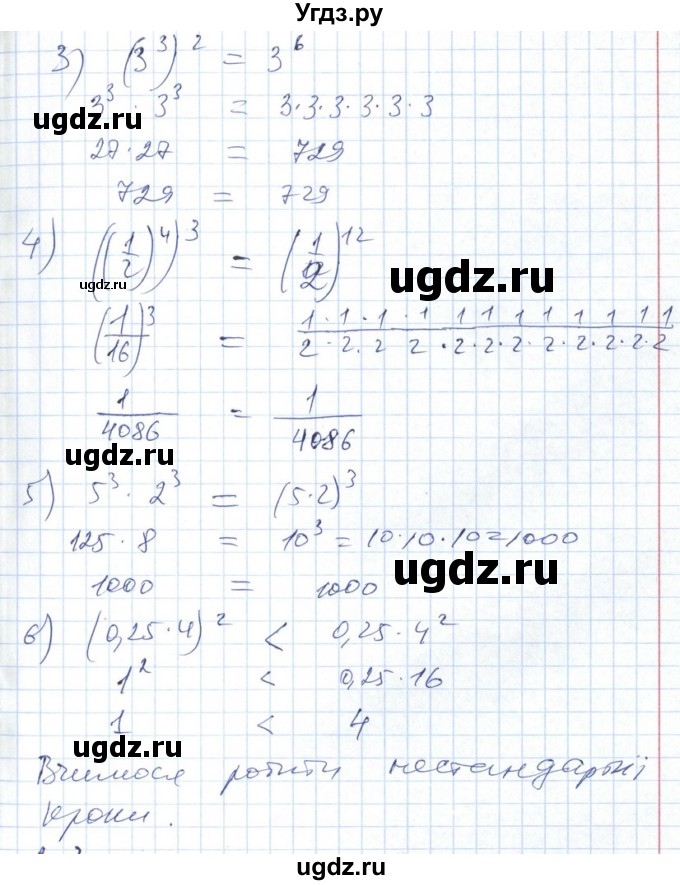 Угдз.ру
3) (3³)² = 3⁶
3³ · 3³ = 3·3·3·3·3·3
ugdz.ru
27·27 = 729
729 = 729
4) ((1/2)⁴)³ = (1/2)¹²
ugdz.ru
ugdz.ru
(1/16)³ = 1·1·1·1 1 1 1 1 1 1 1 1/2·2·2 2·2·2·2·2·2·2·2·2
1/4086 = 1/4086
ugdz.ru
5) 5³·2³ = (5·2)³
125·8 = 10³ = 10·10·10=1000
1000 = 1000
ugdz.ru
6) (0,25·4)² < 0,25·4²
ugdz.ru
1² < 0,25·16
1 < 4
ugdz.ru
Вчимося робити нестандартні
кроки.
ugdz.ru